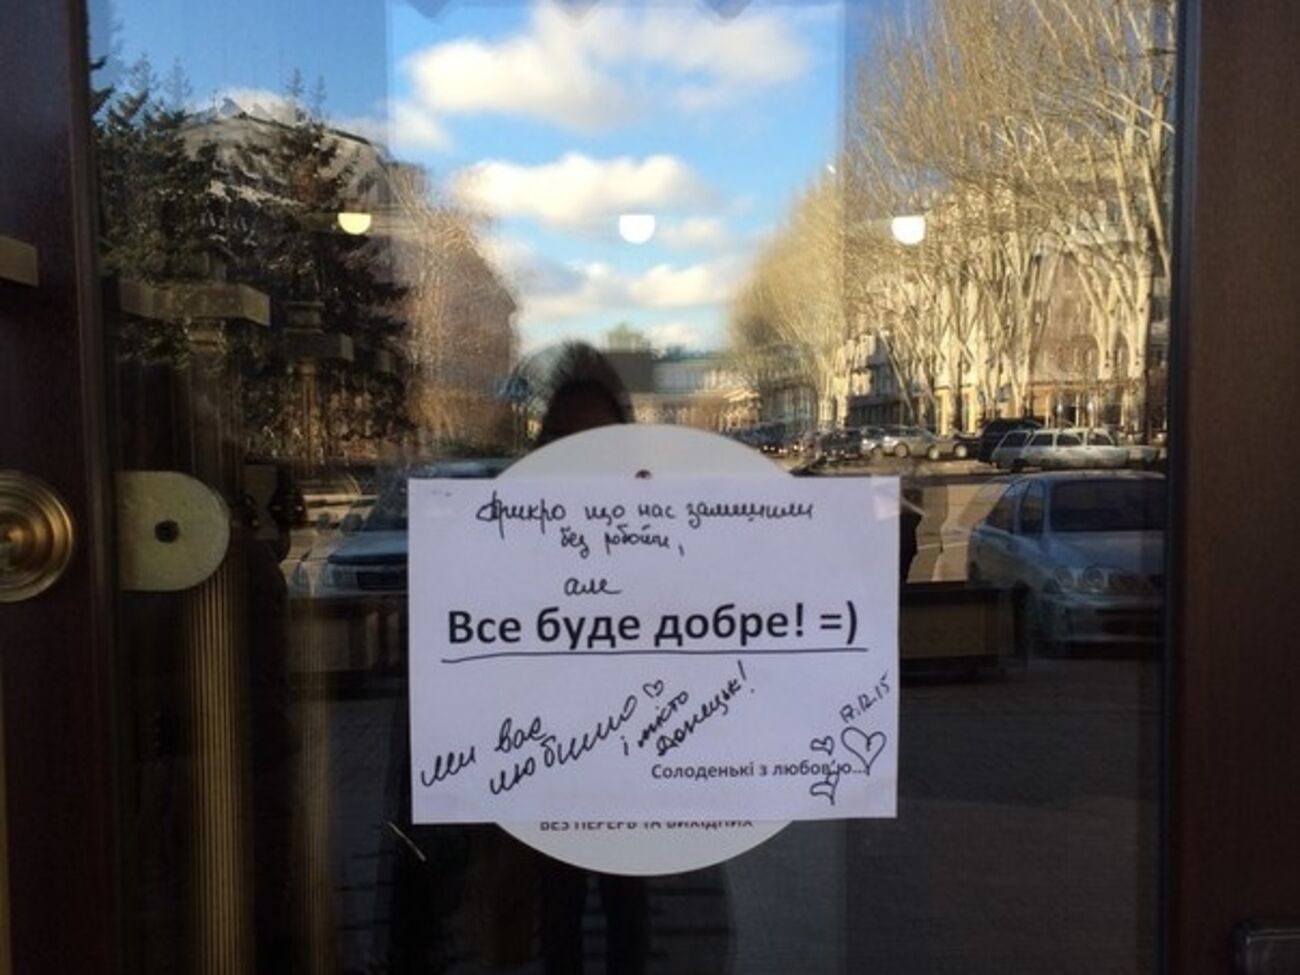 Прикро що нас залишили
без роботи,
але
Все буде добре! =)
ми вас
любимо
і місто
Донецьк!
17.12.15
Солоденькі з любов'ю...
БЕЗ ПЕРЕРВ ТА ВИХІДНИХ